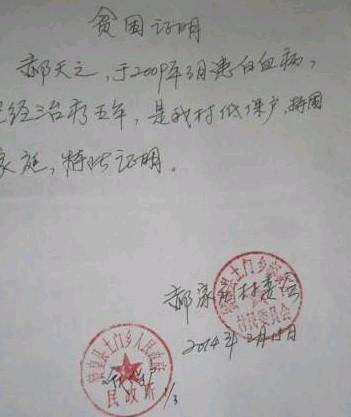 贫困证明
郝天之，于2009年3月患白血病，
已经治疗五年，是我村低保户，特困
家庭，特此证明。
郝家村委会
村民委员会
2014年2月18日
县土门乡人民政府
民政所
1/3